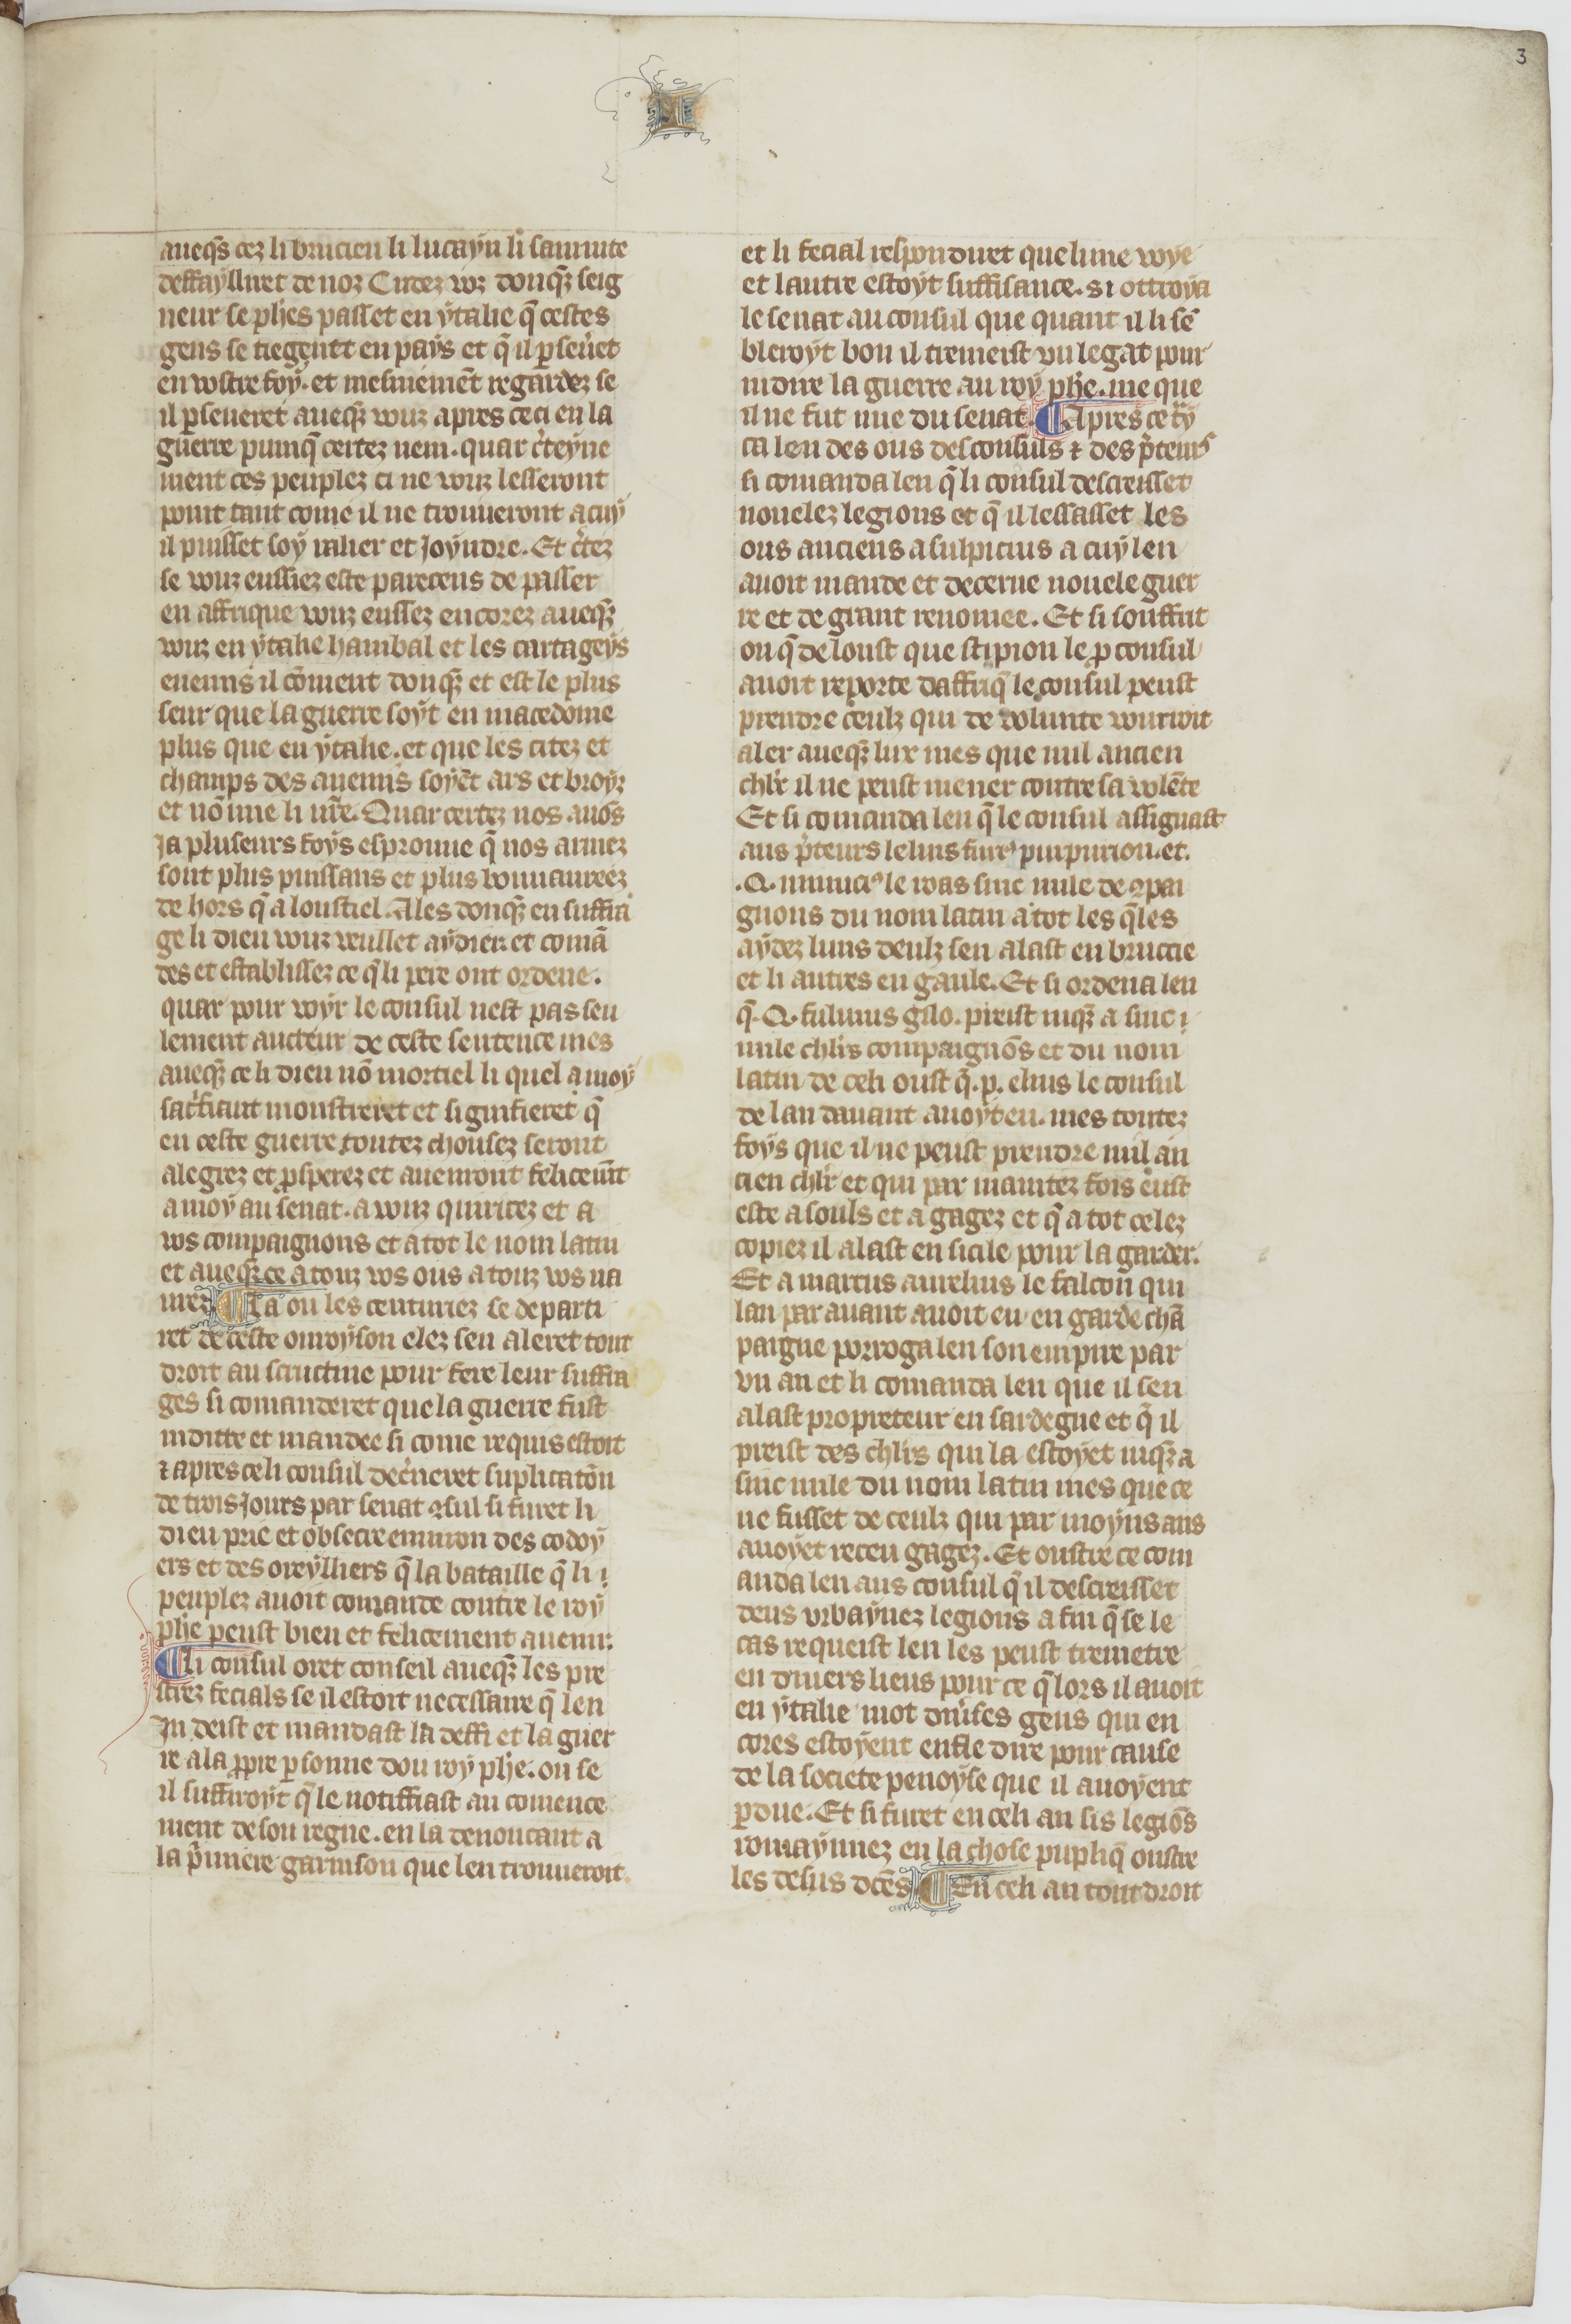 3
I
aueqs cez li brucien li lucayn li samnite
deffayllirent de noz Cuidez voz donq̃z seig
neur se phẽs passet en ytalie q̃ cestes
gens se tiegentt en pays et q̃ il ꝑseuet
en vostre foy. et mesmement regardez se
il ꝑseueret aueq̃z vouz apres ceci en la
guerre puniq̃ certez nem. quar c̃teyne
ment ces peuplez ci ne vouz lesseront
point tant come il ne trouueront a cuy
il puisset soy ralier et Joyndre. Et c̃tez
se vouz eussiez este parecens de passer
en affrique vouz eussez encorez aueq̃z
vouz en ytalie hanibal et les cartageys
enemis il cõuient donq̃z et est le plus
seur que la guerre soyt en macedoine
plus que en ytalie. et que les citez et
champs des anemis soyẽt ars et broyz
et nõ mie li nr̃e. Quar certez nos auõs
Ja pluseurs foys esprouue q̃ nos armez
sont plus puissans et plus bonnaureez
de hors q̃ a loustiel. Ales donq̃z en suffra
ge li dieu vouz veullet aydier et comã
des et establissez ce q̃ li pere ont ordene.
quar pour voyr le consul nest pas seu
lement aucteur de ceste sentence mes
aueq̃z ce li dieu nõ mortiel li quel a moy
sac̃fiant monstreret et signifieret q̃
en ceste guerre toutez chousez seront
alegrez et ꝓsperez et auenront felicem̃t
a moy au senat. a vouz quiritez et a
vos compaignons et a tot le nom latin
et aueq̃z ce a touz vos ous a touz vos na
uiez La ou les centuriez se departi
ret de ceste onroyson elez sen aleret tout
droit au scructine pour fere leur suffra
ges si comanderet que la guerre fust
inditte et mandee si come requis estoit
⁊ apres celi consul dec̃neret suplicatõn
de trois Jours par senat ꝯsul si furet li
dieu prie et obsecre enuiron des codoy
ers et des oreylliers q̃ la bataille q̃ li
peuplez auoit comande contre le roy
phẽ peust bien et felicement auenir.
Li consul oret conseil aueq̃z les pre
strez fecials se il estoit necessaire q̃ len
In deist et mandast la deffi et la guer
re a la ꝓpre ꝑsonne dou roy phẽ. ou se
il suffiroyt q̃ le notiffiast au comence
ment de son regne. en la denoncant a
la p̃miere garnison que len trouueroit
et li fecial respondiret que lune voye
et lautre estoyt suffisance. si ottroya
le senat au consul que quant il li sẽ
bleroyt bon il tremeist vn legat pour
indire la guerre au roy phẽ. me que
il ne fut mie du senat. Apres ce try
ta len des ous des consuls ⁊ des p̃teurs
si comanda len q̃ li consul descreisset
nouelez legions et q̃ il lessasset les
ous anciens a sulpicius a cuy len
auoit mande et decerne nouele guer
re et de grant renomee. Et si souffrit
on q̃ de loust que scipion le ꝓ consul
auoit reporte daffriq̃ le consul peust
prendre ceulz qui de volunte vourroit
aler aueq̃z lui mes que nul ancien
chlr̃ il ne peust mener contre sa volẽte
Et si comanda len q̃ le consul assignast
aus p̃teurs lelius furi⁹ purpurion. et
.Q. minuci⁹ le roas sinc mile de ꝯpai
gnons du nom latin a tot les q̃les
aydez luns deulz sen alast en bruccie
et li autres en gaule. Et si ordena len
q̃ .Q. fuluius gilo. preist iuq̃z a sinc
mile chlr̃s compaignõs et du nom
latin de celi oust q̃ .p. elius le consul
de lan dauant auoyt eu. mes toutez
foys que il ne peust prendre nul an
cien chlr̃ et qui par maintez fois eust
este a souls et a gagez et q̃ a tot celez
copiez il alast en sicile pour la garder.
Et a marcus aurelius le falcon qui
lan par auant auoit eu en garde chã
paigne porroga len son empire par
vn an et li comanda len que il sen
alast propreteur en sardegne et q̃ il
preist des chlr̃s qui la estoyet iuq̃z a
sinc mile du nom latin mes que ce
ne fusset de ceulz qui par moyns ans
auoyet receu gagez. Et oustre ce com
anda len aus consul q̃ il descreisset
deus vrbaynez legions a fin q̃ se le
cas requeist len les peust tremetre
en diuers lieus pour ce q̃ lors il auoit
en ytalie mot diũses gens qui en
cores estoyent enfle dire pour cause
de la societe penoyse que il auoyent
ꝑdue. Et si furet en celi an sis legiõs
romaynnez en la chose pupliq̃ oustre
les desus dcẽs En celi an tout droit